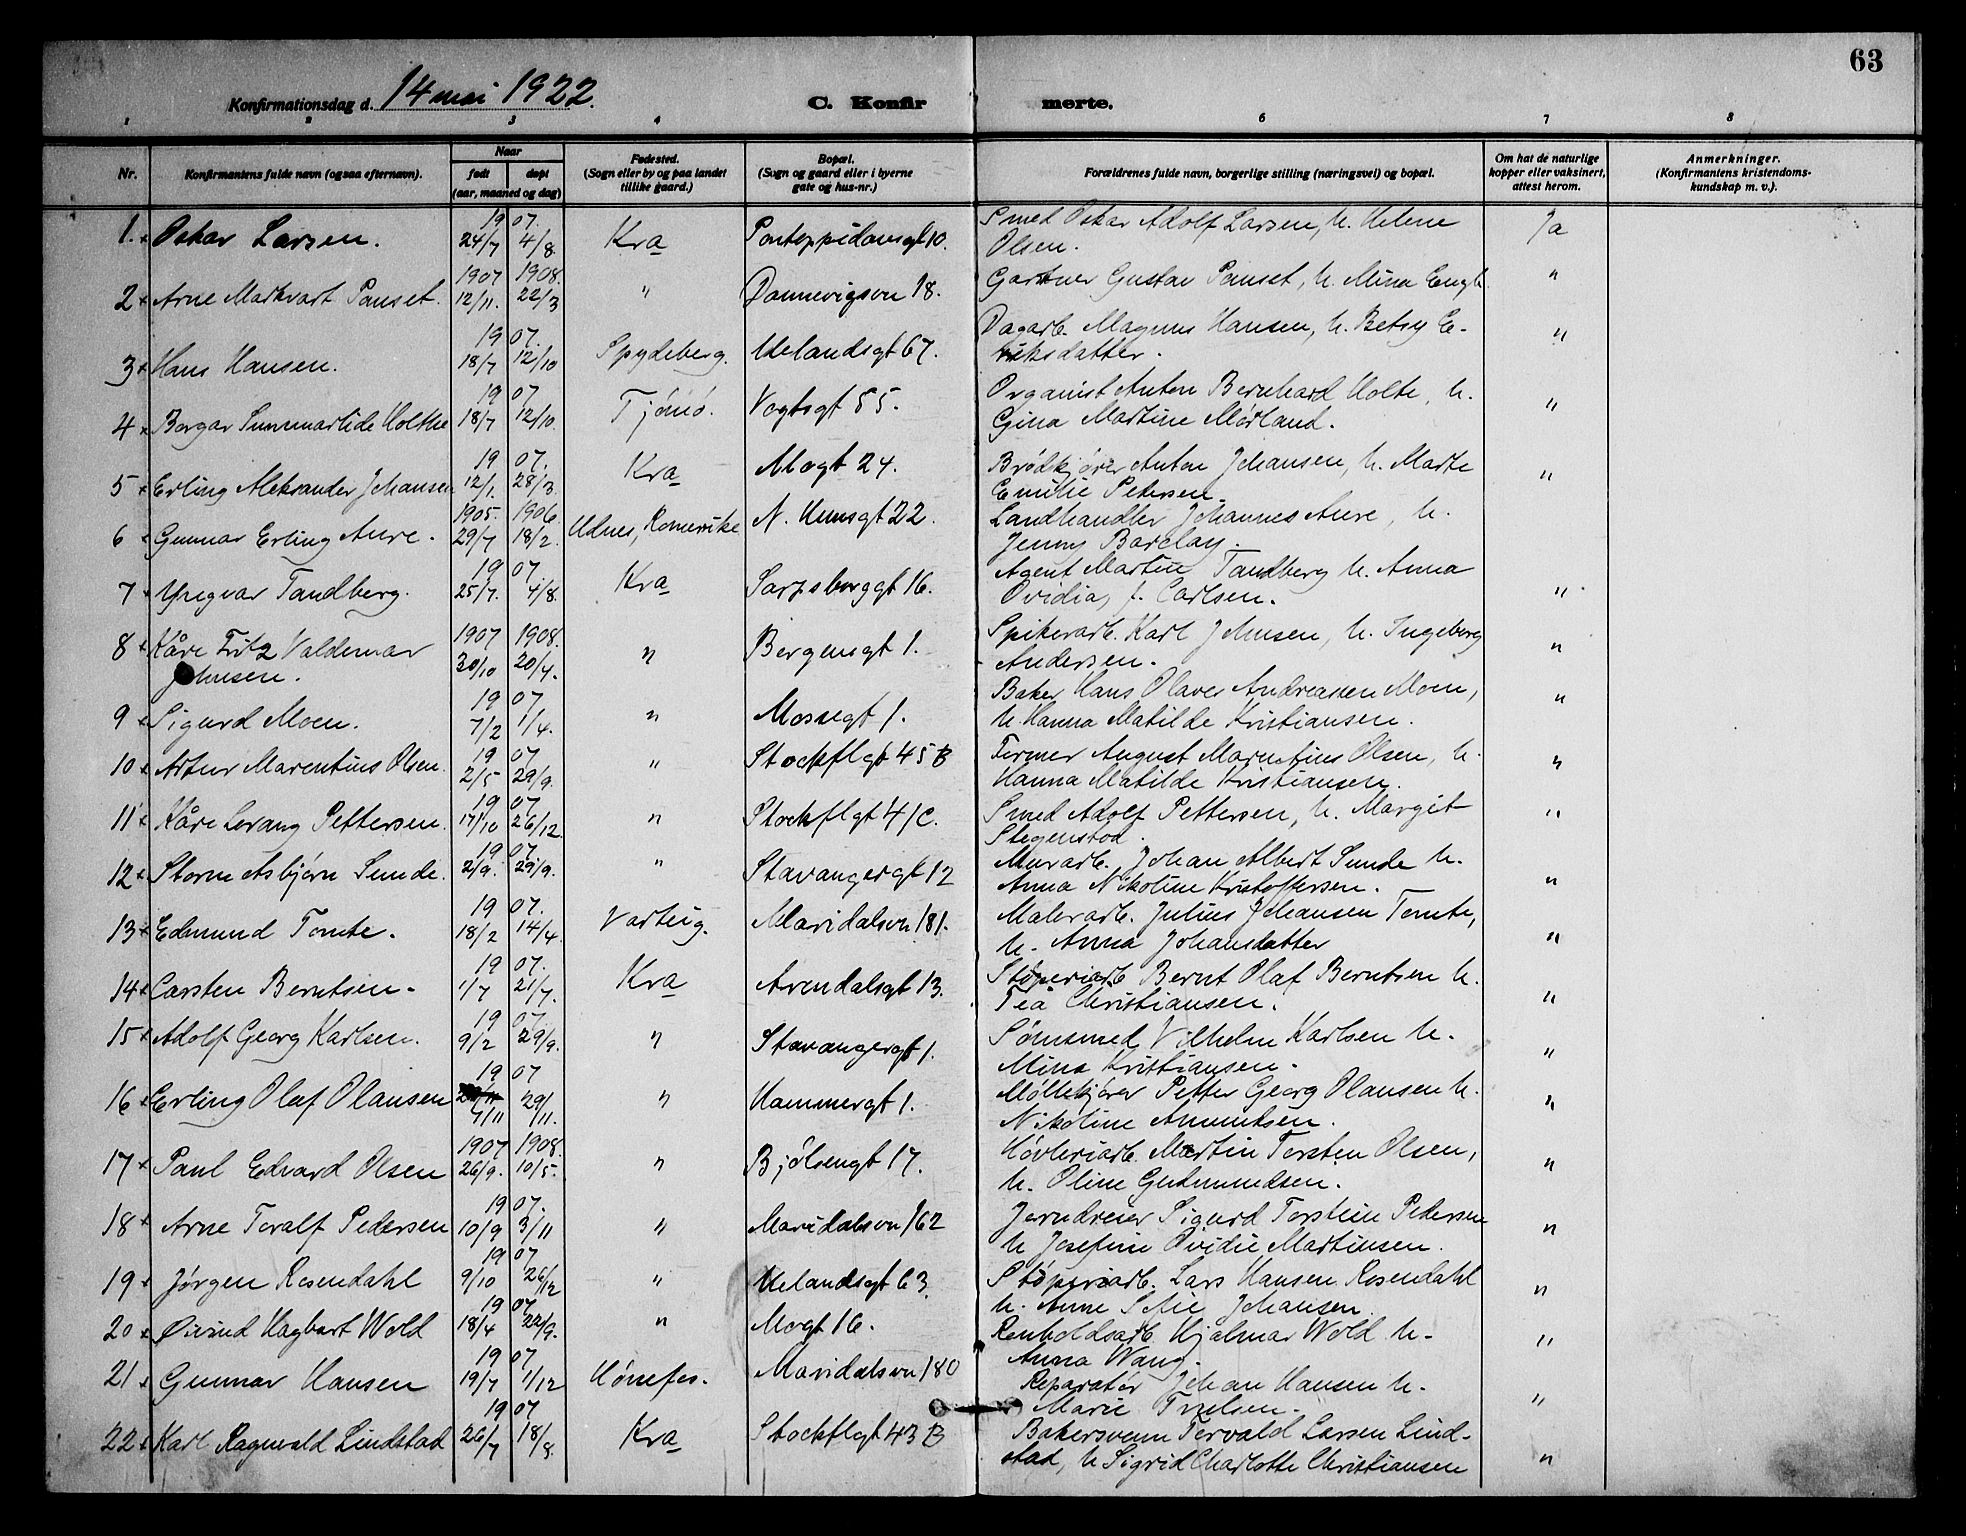 63
Konfirmationsdag d. 14 mai 1922.
C. Konfirmerte.
1 2 3 4 5 6 7 8
Nr.
Konfirmantens fulde navn (ogsaa efternavn).
Naar
født
døpt
(aar, maaned og dag)
Fødested.
(Sogn eller by og paa landet
tillike gaard.)
Bopæl.
(Sogn og gaard eller i byerne
gate og hus-nr.)
Forældrenes fulde navn, borgerlige stilling (næringsvei) og bopæl.
Om hat de naturlige
kopper eller vaksinert,
attest herom.
Anmerkninger.
(Konfirmantens kristendoms-
kundskap m. v.).
1. Oskar Larsen. 19 07. 24/7 4/8 Kra Pontoppidansgt 10. Smed Oskar Adolf Larsen, h. Helene
Olsen. Ja
2 Arne Markvart Panset. 1907 1908. 12/11. 22/3 " Dannevigsvn 18. Gartner Gustav Panset, h. Mina Engh "
3 Hans Hansen. 19 07. 18/7 12/10 Spydeberg. Uelandsgt 67. Dagarb. Magnus Hansen, h. Betsy E-
riksdatter. "
4 Borgar Holthe 19 07 18/7 12/10 Tjömö. Vogtsgt 55. Organist Anton Bernhard Holte, h.
Gina Martine Mørland. "
5 Erling Aleksander Johansen 19 07. 12/1. 28/3. Kra Mogt 24. Brödkjörer Anton Johansen, h. Marte
Emilie Petersen. "
6 Gunnar Erling Aure. 1905. 1906. 29/7 18/2. Udnes, Romerike N. 22. Landhandler Johannes Aure, h.
Jenny Barclay.
7 Yngvar Tandberg. 19 07 25/7. 4/8. Kra Sarpsborggt 16. Agent Martin Tandberg h. Anna
Ovidia, f. Carlsen. "
8 Kåre Fritz Valdemar
Johnsen. 1907 1908. 30/10 20/4. " Bergensgt 1. Spikerarb. Karl Johnsen, h. Ingeborg
Andersen. "
9 Sigurd Moen. 19 07 7/2 1/4. " Mossegt 1. Baker Hans Olaves Andreassen Moen,
h. Hanna Matilde Kristiansen. "
10 Artur Marentius Olsen. 19 07 2/5 29/9. " Stockflgt 45 B Former August Marentius Olsen, h.
Hanna Matilde Kristiansen. "
11 Kåre Lorang Pettersen. 19 07 17/10 26/12. " Stockflgt 41c. Smed Adolf Pettersen, h. Margit
Stegenstod. "
12 Storm Asbjörn Sunde. 19 07 2/9. 29/9. " Stavangergt 12 Murarb. Johan Albert Sunde h.
Anna Nikoline Kristoffersen. "
13 Edmund Tomte. 19 07. 18/2 14/4. Varteig. Maridalsvn 181. Malerarb. Julius Johansen Tomte,
h. Anna Johansdatter "
14 Carsten Berntsen. 19 07. 1/7 21/7. Kra Arendalsgt 13. Støperiarb. Bernt Olaf Berntsen h.
Tea Christiansen. "
15 Adolf Georg Karlsen. 19 07. 9/2 29/9. " Stavangergt 1. Sømsmed Vilhelm Karlsen h.
Mina Kristiansen. "
16 Erling Olaf Olausen 19 07 4/11 29/11. " Hammergt 1. Møllekjører Petter Georg Olausen h.
Nikoline Amundsen. "
17 Paul Edvard Olsen 1907 1908. 26/9. 10/5. " Bjølsengt 17. Høvleriarb. Martin Torsten Olsen,
h. Oline Gudmundsen. "
18 Arne Toralf Pedersen 19 07. 10/9 3/11 " Maridalsvn 162 Jerndreier Sigurd Torstein Pedersen
h Josefine Ovidie Martinsen. "
19 Jørgen Rosendahl 19 07 9/10 26/12 " Uelandsgt 63. Støperiarb. Lars Hansen Rosendahl
h. Anne Sofie Johansen. "
20 Øivind Hagbart Wold 19 07 18/4 22/9. " Mogt 16. Renholdsarb. Hjalmar Wold h.
Anna Wang. "
21 Gunnar Hansen 19 07 19/7 1/12 Hönefos. Maridalsvn 180 Reparatør Johan Hansen h.
Marie Truelsen. "
22 Karl Ragnvald Lindstad 19 07 26/7 18/8. Kra Stockflgt 43 B Bakersvenn Torvald Larsen Lind-
stad, h Sigrid Charlotte Christiansen "